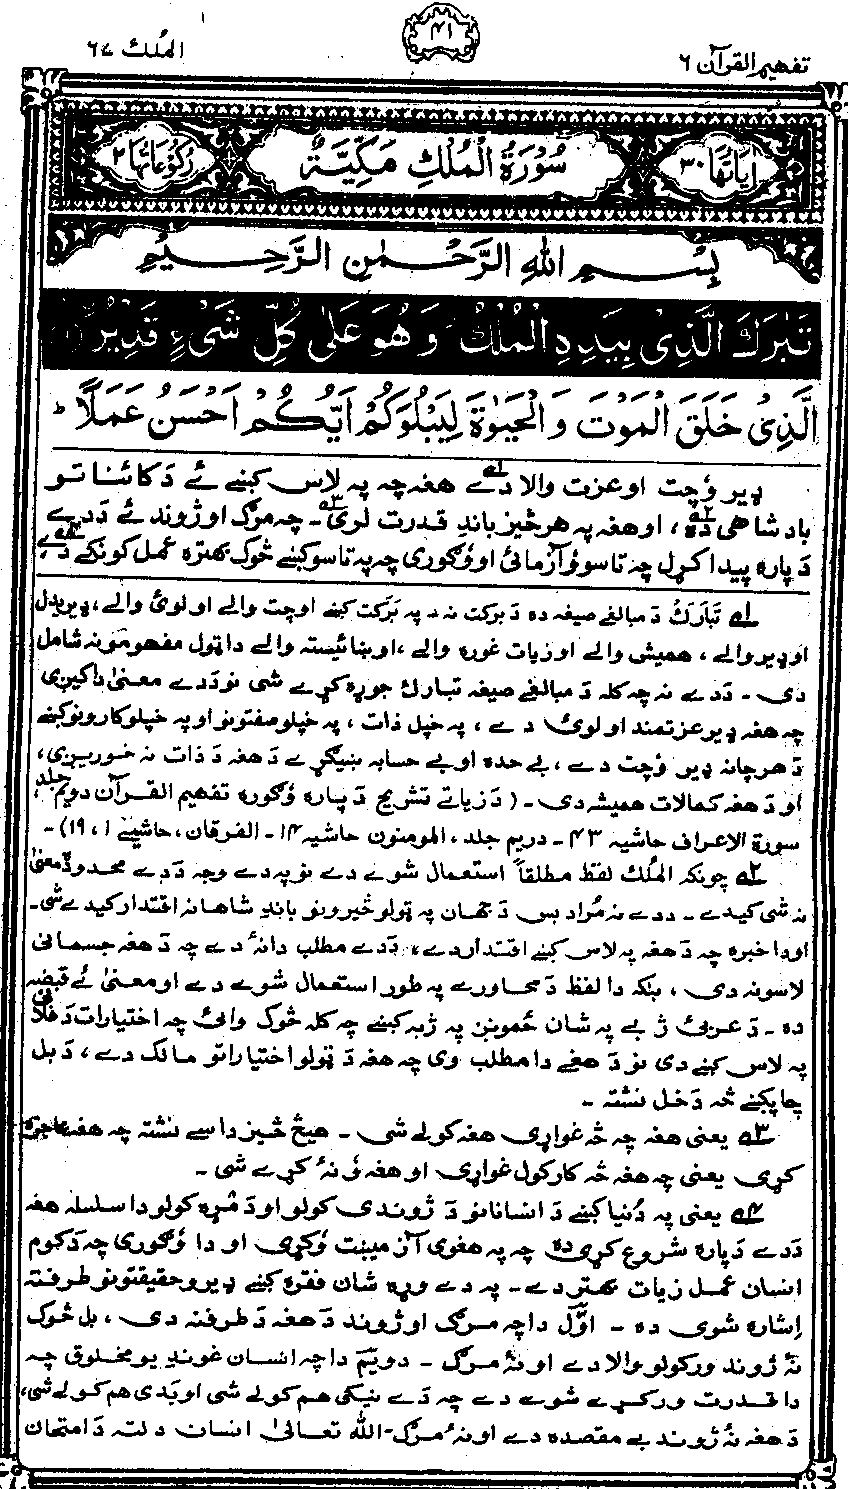 تفهيم القرآن ٦
٤١
الملک ٦٧
اٰيَاتُهَا ٣٠
سُوْرَةُ الْمُلْكِ مَكِّيَّةٌ
رُكُوْعَاتُهَا ٢
بِسْمِ اللهِ الرَّحْمٰنِ الرَّحِيْمِ
تَبٰرَكَ الَّذِىْ بِيَدِهِ الْمُلْكُ وَهُوَ عَلٰى كُلِّ شَىْءٍ قَدِيْرُ ۨ(١)
الَّذِىْ خَلَقَ الْمَوْتَ وَالْحَيٰوةَ لِيَبْلُوَكُمْ اَيُّكُمْ اَحْسَنُ عَمَلًا ط
ډير وُچت او عزت والا دے هغه چه په لاس کښے ئے دَ کائناتو
بادشاهى ده، او هغه په هر څيز باندِ قدرت لرى۔ چه مرګ او ژوند ئے دَدے
دَپاره پيدا کړل چه تاسو و آزمائى او وګورى چه په تاسو کښے څوک بهتره عمل کونکے دے،
١ تَبَارَكَ دَ مبالغے صيغه ده دَ برکت نه د په برکت کښے اوچت والے او لوئ والے، ډير بدل
او ډير والے، هميش والے او زيات غوره والے، او ښائيسته والے دا ټول مفهومونه شامل
دى۔ دَدے نه چه کله دَ مبالغے صيغه تبارك جوړه کړے شى نو دَدے معنىٰ دا کيږى
چه هغه ډير عزتمند او لوئ دے، په خپل ذات، په خپلو صفتونو او په خپلو کارونو کښے
دَ هر چا نه ډير وُچت دے، بے حده او بے حسابه ښيګړے دَ هغه دَ ذات نه خوريږى،
او دَ هغه کمالات هميشه دى۔ (دَ زياتے تشريح دَ پاره وګوره تفهيم القرآن دويم جلد،
سورة الاعراف حاشيه ٤٣۔ دريم جلد، المومنون حاشيه ١٤۔ الفرقان، حاشيے ١، ١٩)۔
٢ چونکه الملك لفظ مطلقاً استعمال شوے دے نو په دے وجه دَدے محدوده معنىٰ
نه شى کيدے۔ ددے نه مُراد بس دَ جهان په ټولو څيزونو باندِ شاهانه اقتدار کيدے شى۔
او دا خبره چه دَ هغه په لاس کښے اقتدار دے، دَدے مطلب دا نۀ دے چه دَ هغه جسمانى
لاسونه دى، بلکه دا لفظ دَ محاورے په طور استعمال شوے دے او معنىٰ ئے قبضه
ده۔ دَ عربئ ژبے په شان ځمونږ په ژبه کښے چه کله څوک وائ چه اختيارات دَ فلانى
په لاس کښے دى نو دَ هغے دا مطلب وى چه هغه دَ ټولو اختياراتو مالک دے، دَ بل
چا پکښے څه دَخل نشته۔
٣ يعنى هغه چه څه غواړى هغه کولے شى۔ هيڅ څيز داسے نشته چه هغه عاجزه
کړى يعنى چه هغه څه کار کول غواړى او هغه وُ نۀ کړے شى۔
٤ يعنى په دُنيا کښے دَ انسانانو دَ ژوندى کولو او دَ مړه کولو دا سلسله هغه
دَدے دَپاره شروع کړى ده چه په هغوى آزمېښت وُکړى او دا وُګورى چه دَ کوم
انسان عمل زيات بهتر دے۔ په دے وړه شان فقره کښے ډيرو حقيقتونو طرفته
اِشاره شوى ده۔ اوّل دا چه مرګ او ژوند دَ هغه دَ طرفنه دى، بل څوک
نۀ ژوند ورکولو والا دے او نۀ مرګ۔ دويم دا چه انسان غوندِ يو مخلوق چه
دا قدرت ورکړے شوے دے چه دَے نيکى هم کولے شى او بدى هم کولے شى،
دَ هغه نۀ ژوند بے مقصده دے او نۀ مرګ۔ الله تعالىٰ انسان دلته دَ امتحان